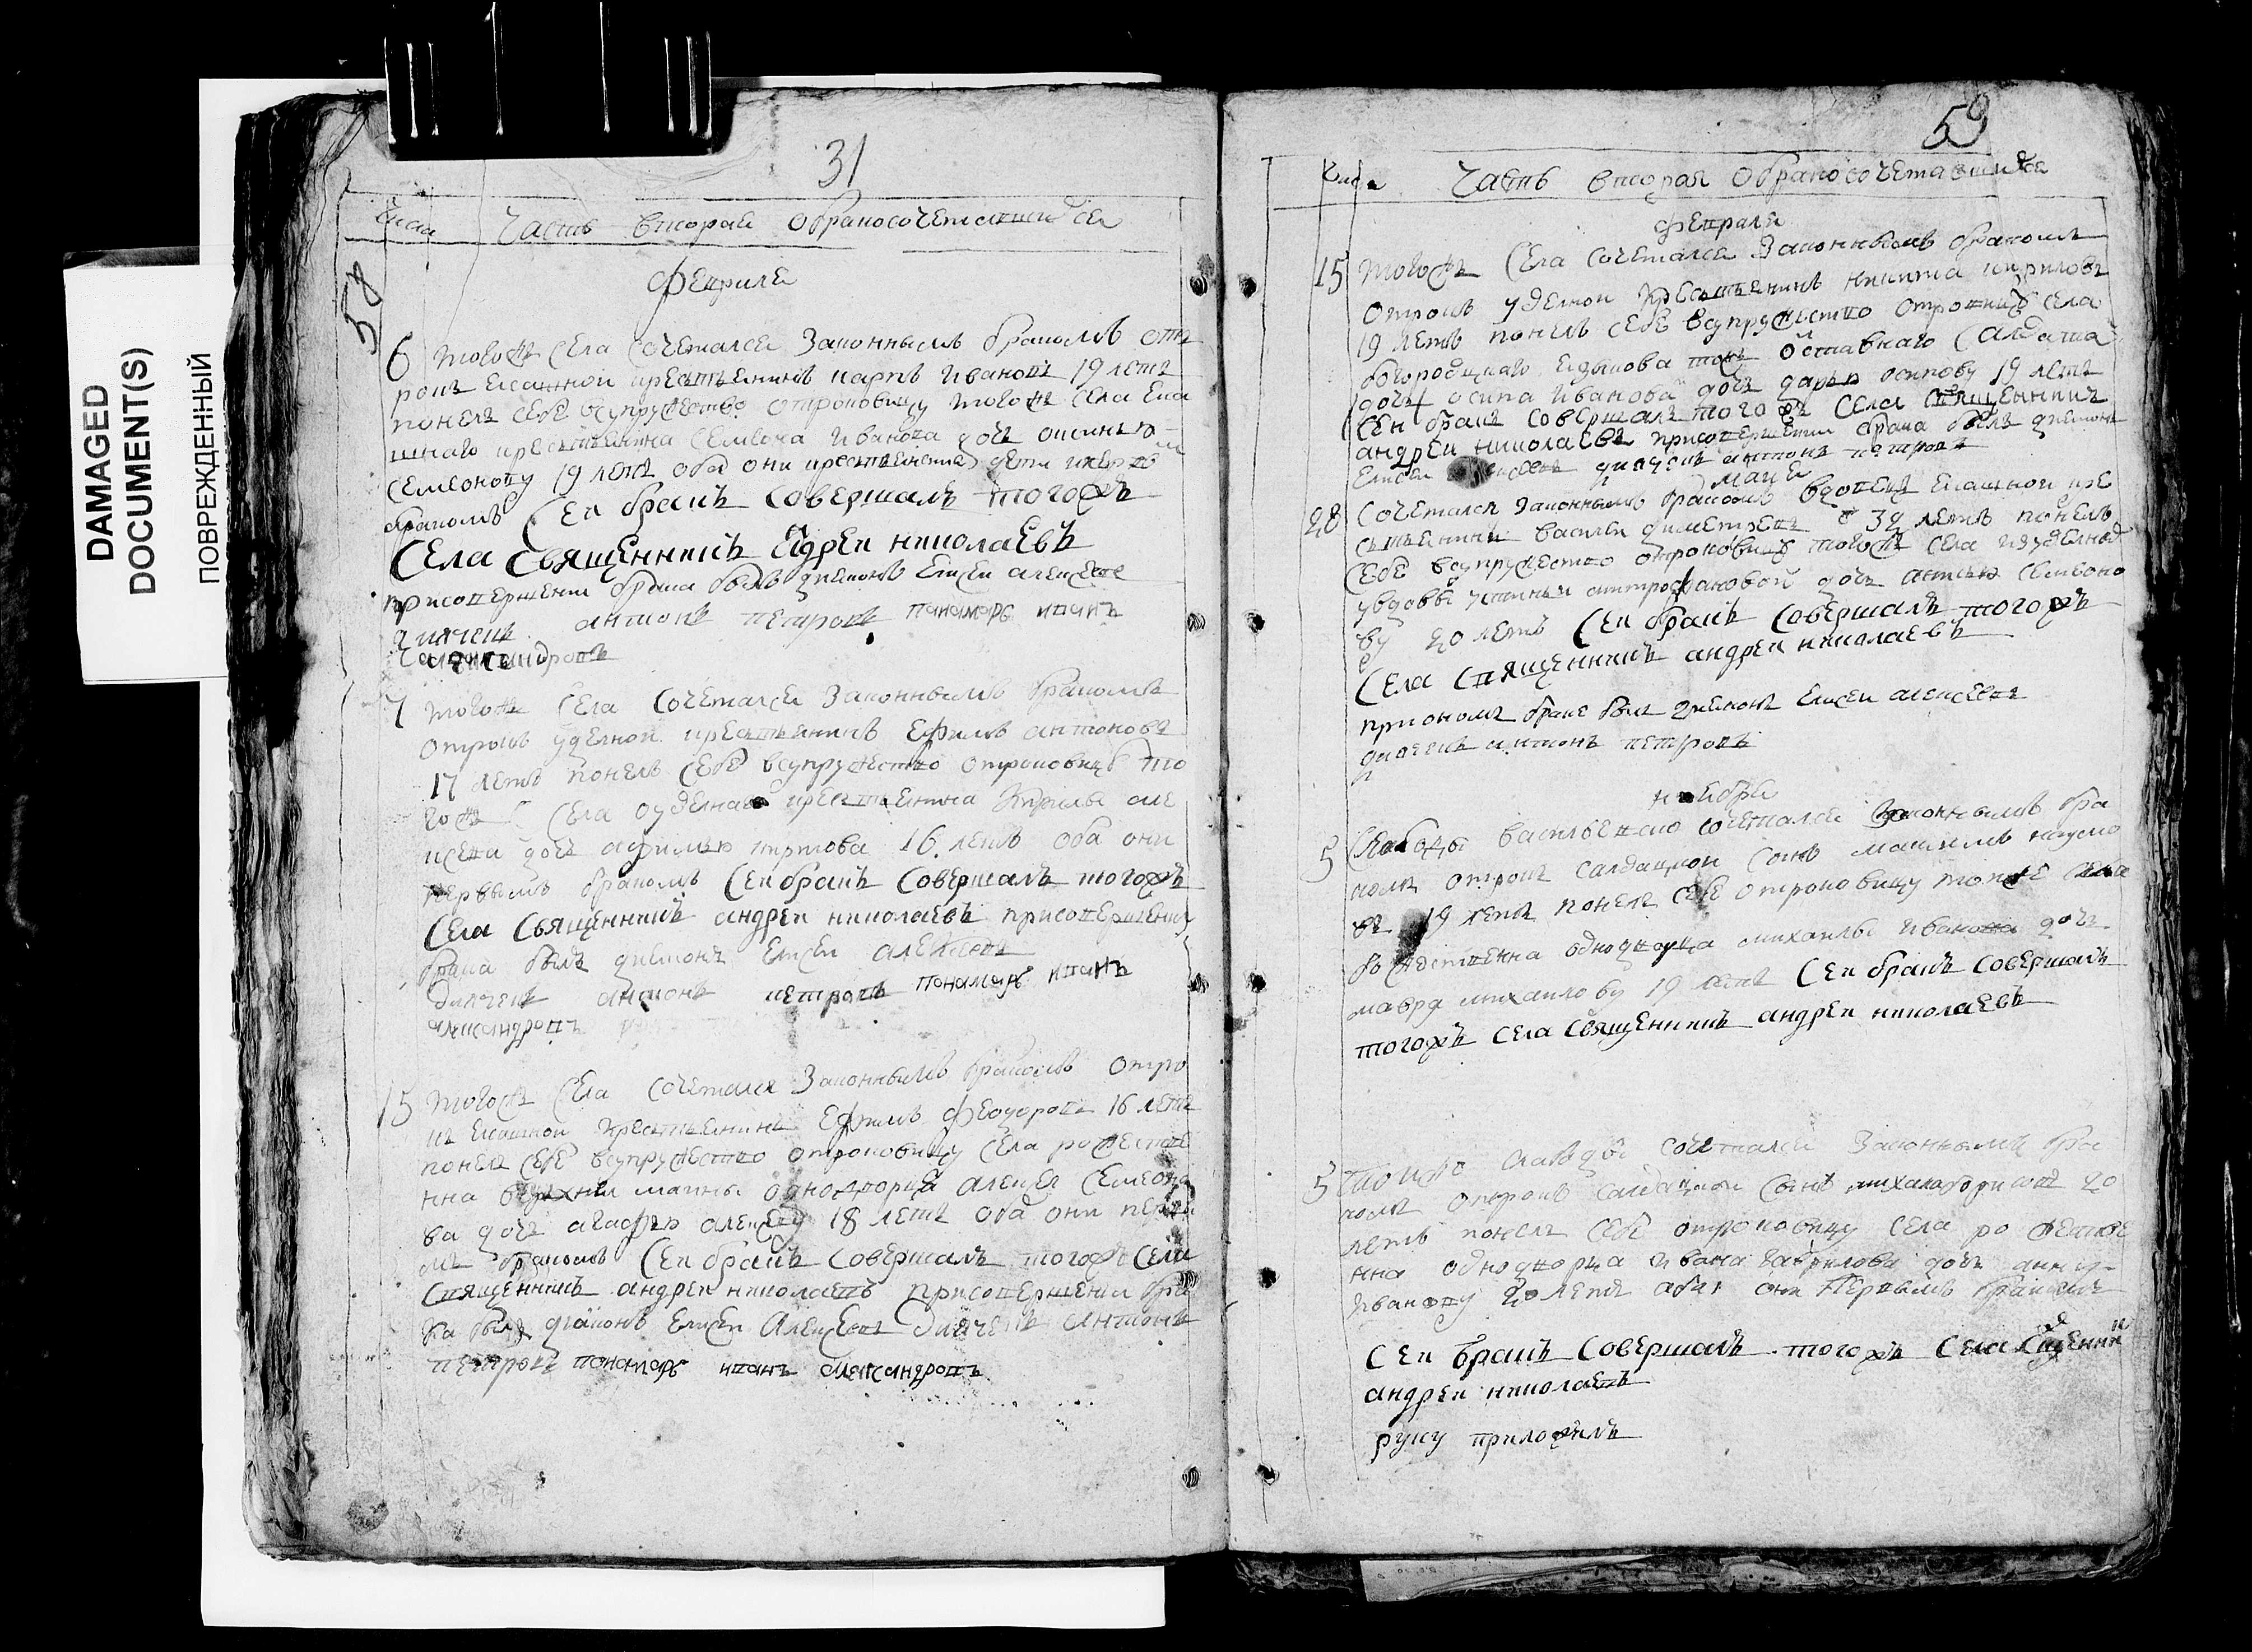 DAMAGED
DOCUMENT(S)
ПОВРЕЖДЕННЫЙ
31
58
числа часть вторая о браносочетавшихся
февраля
6 того жъ села сочетался законнымъ бракомъ отъ
рокъ ясашной крестьянинъ карпъ Ивановъ 19 летъ
понелъ себе всупружество отроковицу того жъ села яса
шнаго крестьянина семиона Иванова дочь
семионову 19 летъ оба они крестьянские дети первымъ
бракомъ Сеи бракъ совершалъ тогожъ
села священникъ андреи николаевъ
присовершении брака былъ диаконъ Елисеи алексеевъ
дьячекъ антонъ петровъ панамарь иванъ
александровъ
7 того жъ села сочетался законнымъ бракомъ
отрокъ уделной крестьянинъ Ефимъ антоновъ
17 летъ понелъ себе всупружество отроковицу то
гожъ села уделнаго крестьянина Кирилы але
ксеева дочь кирилова 16 летъ оба они
первымъ бракомъ Сеи бракъ совершалъ тогожъ
села священникъ андреи николаевъ присовершении
брака былъ диаконъ Елисеи алексеевъ
дьячекъ антонъ петровъ понамарь иванъ
александровъ
15 того жъ села сочетался законнымъ бракомъ отро
къ ясашной крестьянинъ Ефимъ феодоровъ 16 летъ
понелъ себе всупружество отроковицу села рожестве
нна верхнеи маины однодворца алексея семионо
ва дочь агафью алексееву 18 летъ оба они первы
мъ бракомъ Сеи бракъ совершалъ тогожъ села
священникъ андреи николаевъ присовершении бра
ка былъ диаконъ Елисеи Алексеевъ дьячекъ Антонъ
петровъ понамарь иванъ александровъ
59
числа часть вторая о браносочетавшихся
февраля
15 того жъ села сочетался законнымъ бракомъ
отрокъ уделной крестьянинъ никита кириловъ
19 летъ понелъ себе всупружество отроковицу села
богородцкаго отставнаго салдата
осипа Иванова дочь дарью осипову 19 летъ
Сеи бракъ совершалъ тогожъ села священникъ
андреи николаевъ присовершении брака былъ диаконъ
Елисеи дьячекъ антонъ петровъ
маия
28 сочетался законнымъ бракомъ вдовецъ ясашной кре
стьянинъ василеи димитревъ 32 летъ понелъ
себе всупружество отроковицу того жъ села изуделныхъ
увдовы устиньи митрофановой дочь семионо
ву 20 летъ Сеи бракъ совершалъ тогожъ
села священникъ андреи николаевъ
приономъ браке былъ диаконъ Елисеи алексеевъ
дьячекъ антонъ петровъ
ноября
5 слабоды васильевско сочетался законнымъ бра
комъ отрокъ салдацкои сынъ максимъ наумо
въ 19 летъ понелъ себе отроковицу села
рожественна однодворца михаилы Иванова дочь
мавру михаилову 19 летъ Сеи бракъ совершалъ
тогожъ села священникъ андреи николаевъ
5 слабоды сочетался законнымъ бра
комъ отрокъ салдацкои сынъ михаила борисовъ 20
летъ понелъ себе отроковицу села рожестве
нна однодворца Ивана гаврилова дочь анну
Иванову 20 летъ оба они первымъ бракомъ
Сеи бракъ совершалъ тогожъ села священникъ
андреи николаевъ
руку приложилъ